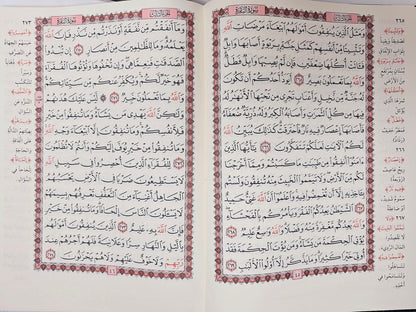 سورة البقرة
الجزء الثالث
٢٦٥
وَمَثَلُ ٱلَّذِينَ يُنفِقُونَ أَمْوَٰلَهُمُ ٱبْتِغَآءَ مَرْضَاتِ ٱللَّهِ
وَتَثْبِيتًا مِّنْ أَنفُسِهِمْ كَمَثَلِ جَنَّةٍۭ بِرَبْوَةٍ أَصَابَهَا وَابِلٌ
فَـَٔاتَتْ أُكُلَهَا ضِعْفَيْنِ فَإِن لَّمْ يُصِبْهَا وَابِلٌ فَطَلٌّ
وَٱللَّهُ بِمَا تَعْمَلُونَ بَصِيرٌ ٢٦٥ أَيَوَدُّ أَحَدُكُمْ أَن تَكُونَ
لَهُۥ جَنَّةٌ مِّن نَّخِيلٍ وَأَعْنَابٍ تَجْرِى مِن تَحْتِهَا ٱلْأَنْهَٰرُ لَهُۥ
فِيهَا مِن كُلِّ ٱلثَّمَرَٰتِ وَأَصَابَهُ ٱلْكِبَرُ وَلَهُۥ ذُرِّيَّةٌ ضُعَفَآءُ
فَأَصَابَهَآ إِعْصَارٌ فِيهِ نَارٌ فَٱحْتَرَقَتْ كَذَٰلِكَ يُبَيِّنُ ٱللَّهُ
لَكُمُ ٱلْـَٔايَٰتِ لَعَلَّكُمْ تَتَفَكَّرُونَ ٢٦٦ يَٰٓأَيُّهَا ٱلَّذِينَ ءَامَنُوٓا۟
أَنفِقُوا۟ مِن طَيِّبَٰتِ مَا كَسَبْتُمْ وَمِمَّآ أَخْرَجْنَا
لَكُم مِّنَ ٱلْأَرْضِ وَلَا تَيَمَّمُوا۟ ٱلْخَبِيثَ مِنْهُ تُنفِقُونَ وَلَسْتُم
بِـَٔاخِذِيهِ إِلَّآ أَن تُغْمِضُوا۟ فِيهِ وَٱعْلَمُوٓا۟ أَنَّ ٱللَّهَ غَنِىٌّ حَمِيدٌ
٢٦٧ ٱلشَّيْطَٰنُ يَعِدُكُمُ ٱلْفَقْرَ وَيَأْمُرُكُم بِٱلْفَحْشَآءِ
وَٱللَّهُ يَعِدُكُم مَّغْفِرَةً مِّنْهُ وَفَضْلًا وَٱللَّهُ وَٰسِعٌ عَلِيمٌ ٢٦٨
يُؤْتِى ٱلْحِكْمَةَ مَن يَشَآءُ وَمَن يُؤْتَ ٱلْحِكْمَةَ فَقَدْ
أُوتِىَ خَيْرًا كَثِيرًا وَمَا يَذَّكَّرُ إِلَّآ أُو۟لُوا۟ ٱلْأَلْبَٰبِ ٢٦٩
٤٥
٢٦٦
٢٦٧
الجزء الثالث
سورة البقرة
وَمَآ أَنفَقْتُم مِّن نَّفَقَةٍ أَوْ نَذَرْتُم مِّن نَّذْرٍ فَإِنَّ ٱللَّهَ
يَعْلَمُهُۥ وَمَا لِلظَّٰلِمِينَ مِنْ أَنصَارٍ ٢٧٠ إِن تُبْدُوا۟
ٱلصَّدَقَٰتِ فَنِعِمَّا هِىَ وَإِن تُخْفُوهَا وَتُؤْتُوهَا ٱلْفُقَرَآءَ
فَهُوَ خَيْرٌ لَّكُمْ وَيُكَفِّرُ عَنكُم مِّن سَيِّـَٔاتِكُمْ
وَٱللَّهُ بِمَا تَعْمَلُونَ خَبِيرٌ ٢٧١ لَّيْسَ عَلَيْكَ هُدَىٰهُمْ
وَلَٰكِنَّ ٱللَّهَ يَهْدِى مَن يَشَآءُ وَمَا تُنفِقُوا۟ مِنْ خَيْرٍ
فَلِأَنفُسِكُمْ وَمَا تُنفِقُونَ إِلَّا ٱبْتِغَآءَ وَجْهِ ٱللَّهِ
وَمَا تُنفِقُوا۟ مِنْ خَيْرٍ يُوَفَّ إِلَيْكُمْ وَأَنتُمْ لَا تُظْلَمُونَ
٢٧٢ لِلْفُقَرَآءِ ٱلَّذِينَ أُحْصِرُوا۟ فِى سَبِيلِ ٱللَّهِ
لَا يَسْتَطِيعُونَ ضَرْبًا فِى ٱلْأَرْضِ يَحْسَبُهُمُ
ٱلْجَاهِلُ أَغْنِيَآءَ مِنَ ٱلتَّعَفُّفِ تَعْرِفُهُم بِسِيمَٰهُمْ
لَا يَسْـَٔلُونَ ٱلنَّاسَ إِلْحَافًا وَمَا تُنفِقُوا۟ مِنْ خَيْرٍ
فَإِنَّ ٱللَّهَ بِهِۦ عَلِيمٌ ٢٧٣ ٱلَّذِينَ يُنفِقُونَ أَمْوَٰلَهُم
بِٱلَّيْلِ وَٱلنَّهَارِ سِرًّا وَعَلَانِيَةً فَلَهُمْ أَجْرُهُمْ عِندَ
رَبِّهِمْ وَلَا خَوْفٌ عَلَيْهِمْ وَلَا هُمْ يَحْزَنُونَ ٢٧٤
٤٦
٢٧٣